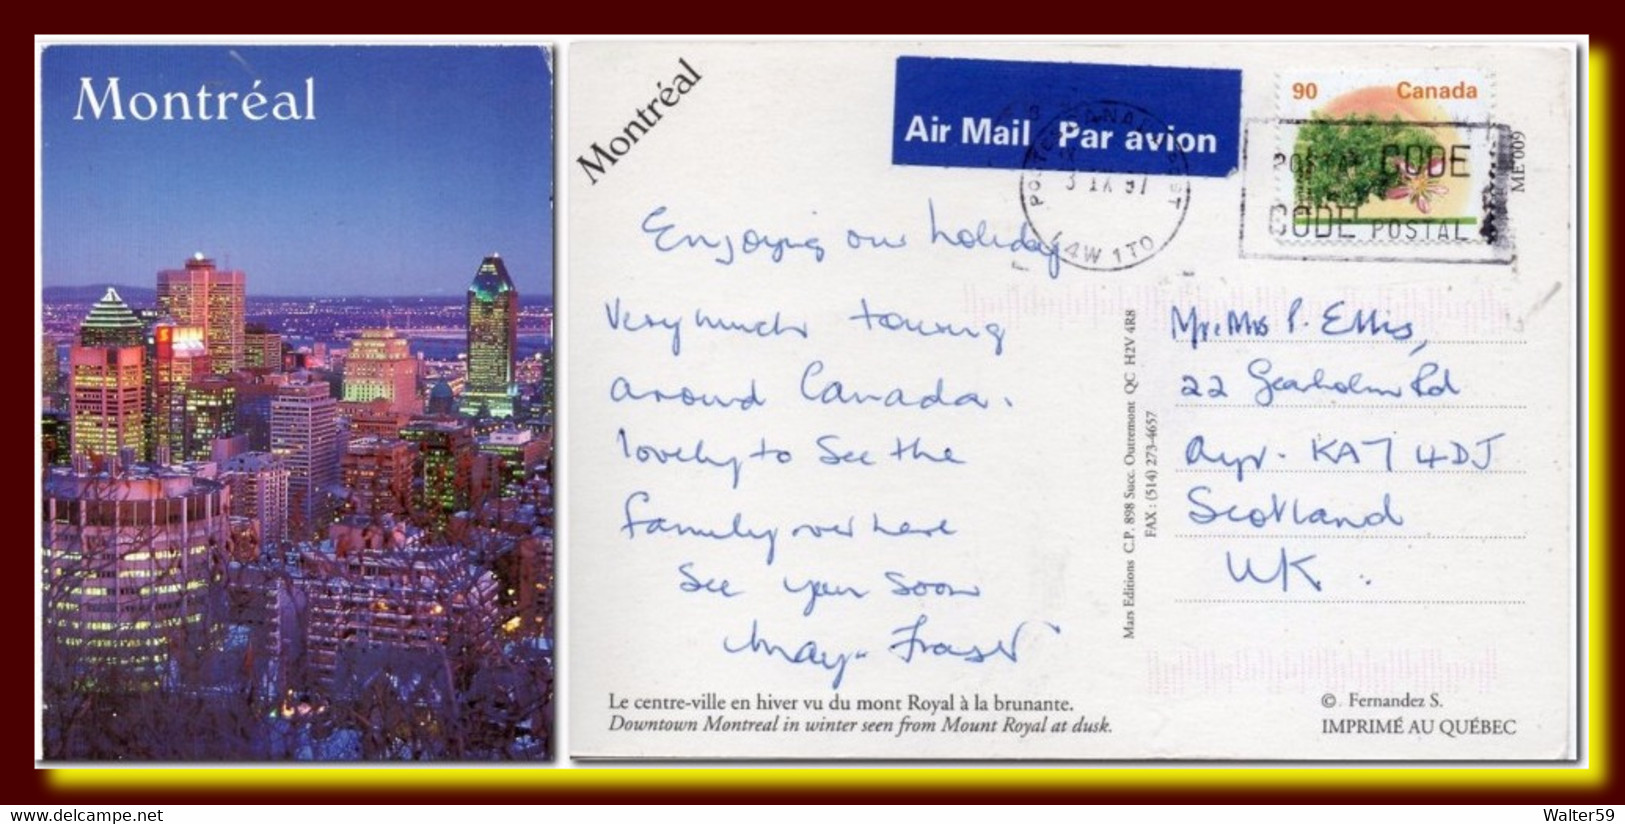 Montréal
Montréal
Air Mail Par avion
90 Canada
POSTAL CODE
CODE POSTAL
3 IX 97
L4W 1T0
ME 009
Enjoying our holiday
very much touring
around Canada.
lovely to see the
family over here
See you soon
May. Fraser
Mr & Mrs P. Ellis,
22 Rd
Ayr. KA7 4DJ
Scotland
UK.
Mars Editions C.P. 898 Succ. Outremont QC H2V 4R8
FAX : (514) 273-4657
Le centre-ville en hiver vu du mont Royal à la brunante.
Downtown Montreal in winter seen from Mount Royal at dusk.
© Fernandez S.
IMPRIMÉ AU QUÉBEC
delcampe.net
Walter59